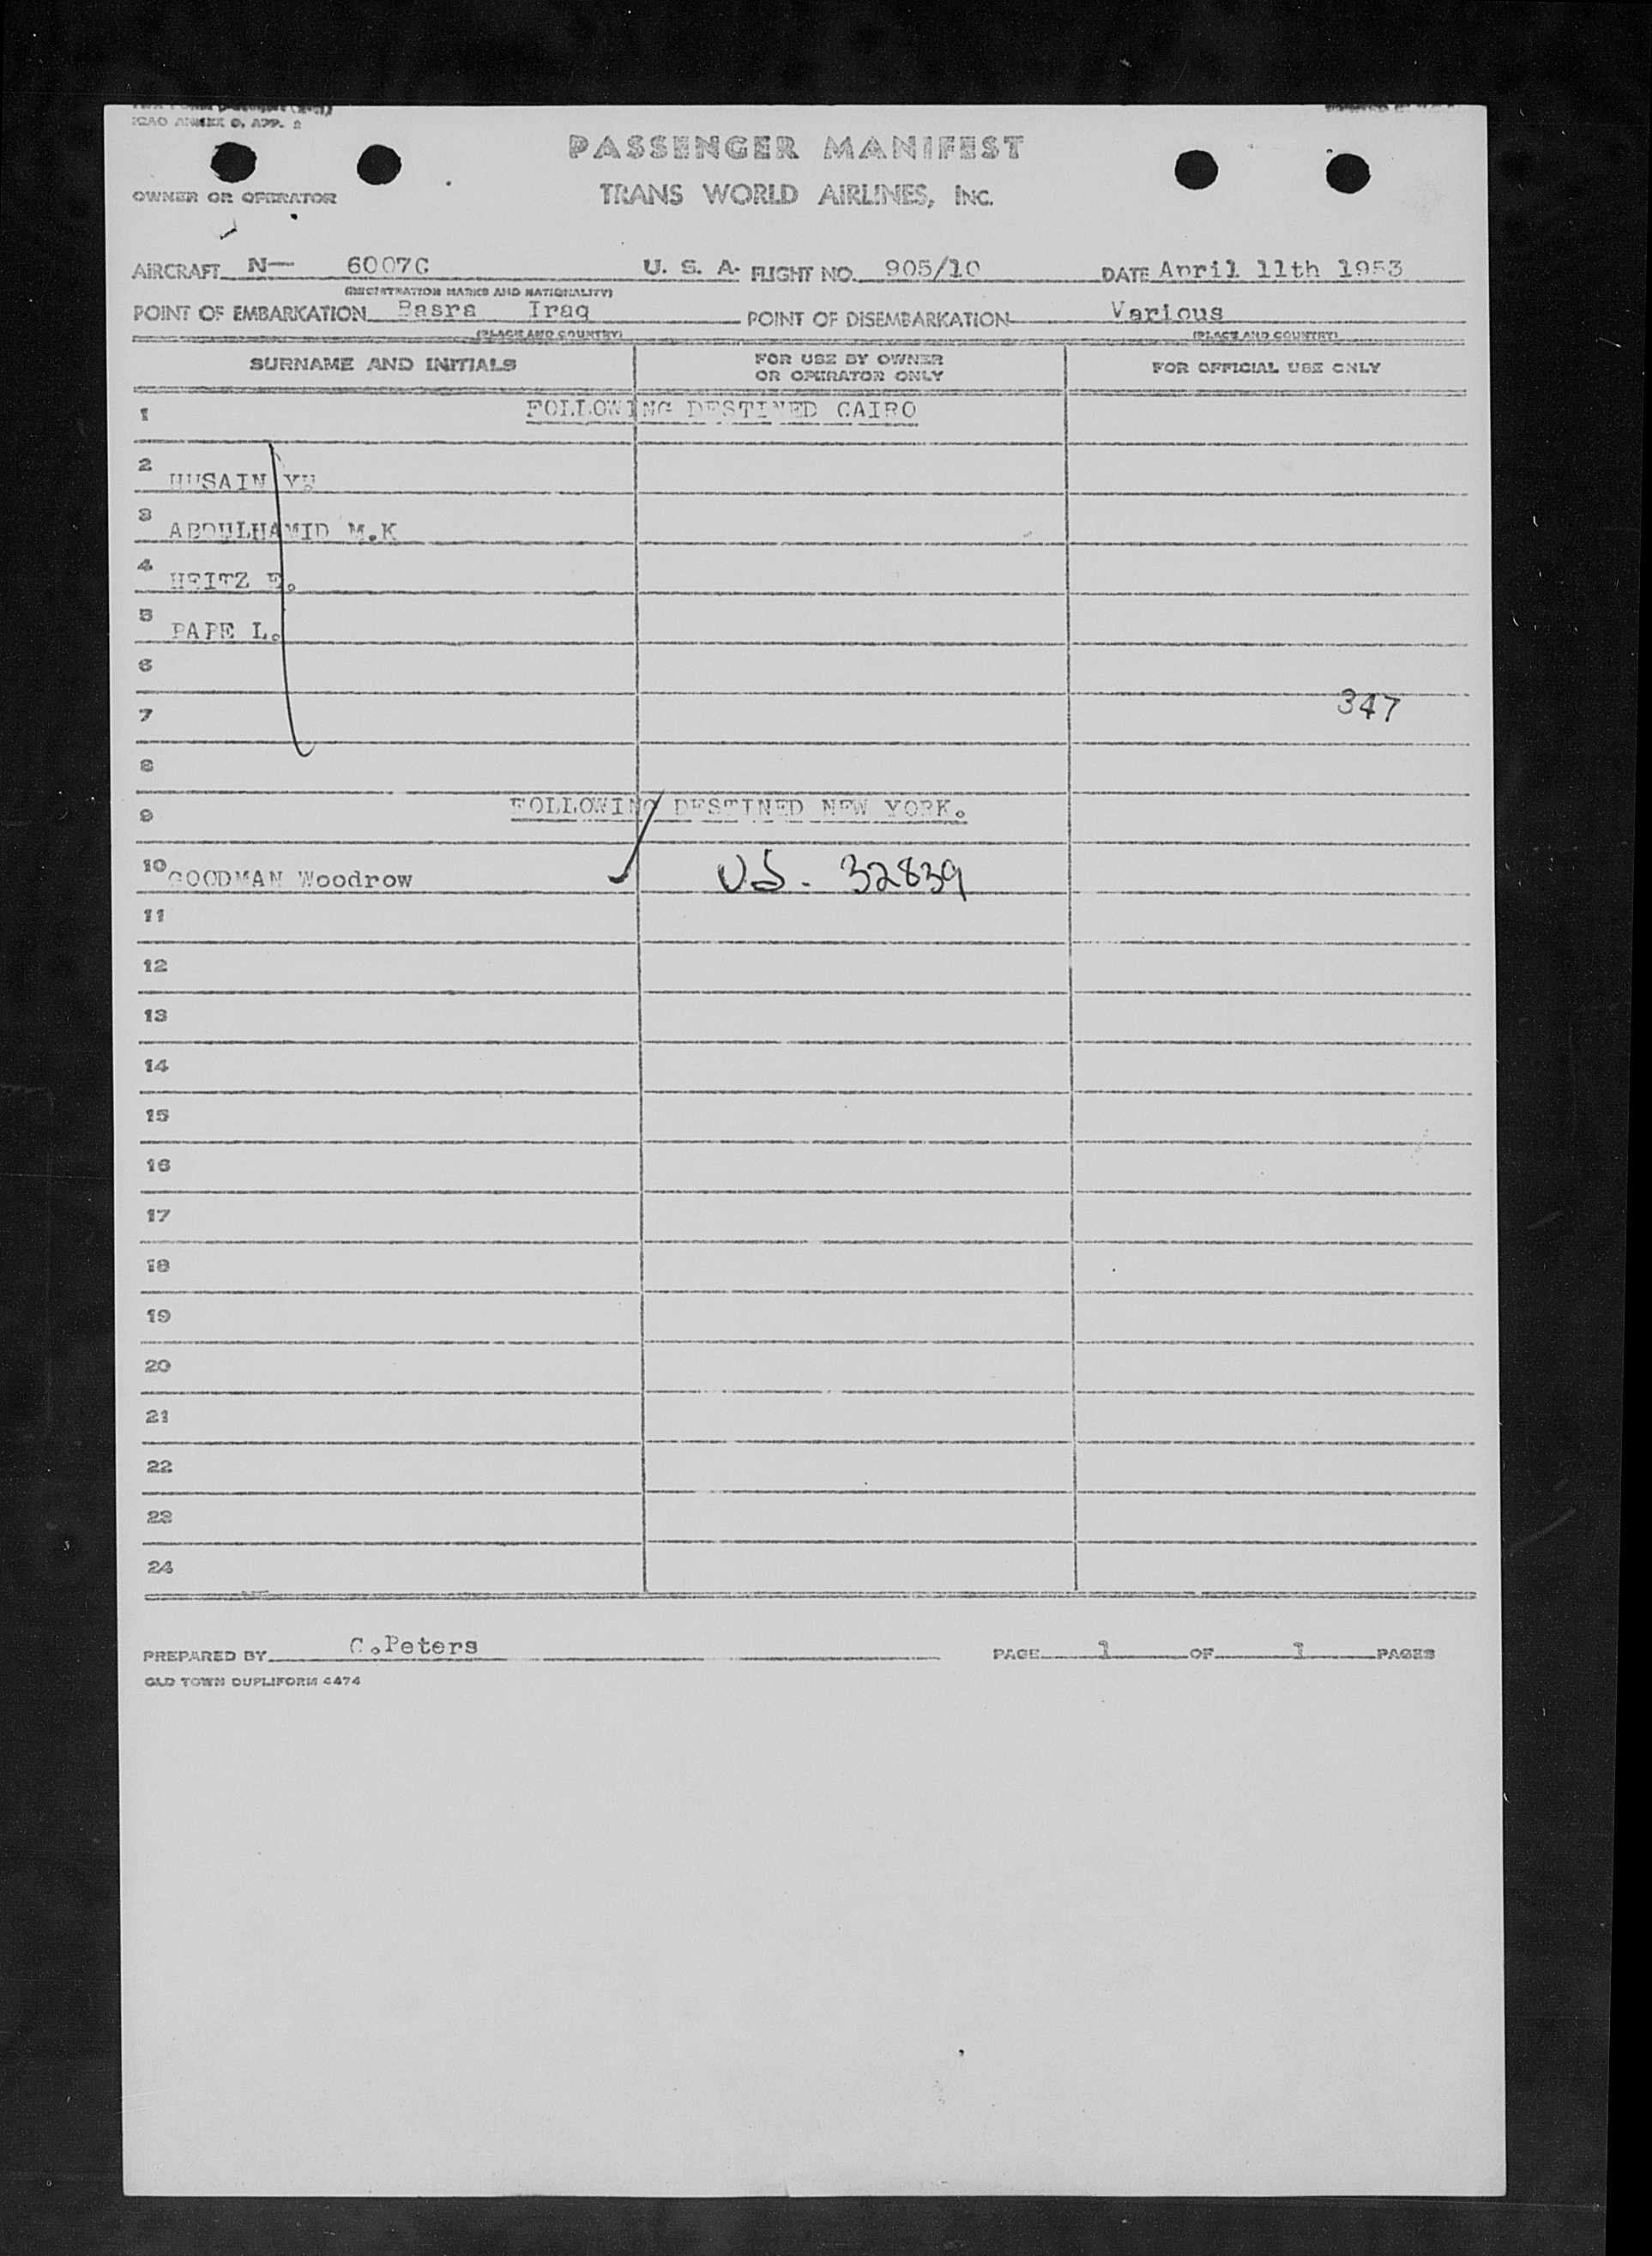 ICAO ANNEX 9, APP. 2
PASSENGER MANIFEST
OWNER OR OPERATOR TRANS WORLD AIRLINES, INC.
AIRCRAFT N— 6007C U. S. A. FLIGHT NO. 905/10 DATE April 11th 1953
(REGISTRATION MARKS AND NATIONALITY)
POINT OF EMBARKATION Basra Iraq POINT OF DISEMBARKATION Various
(PLACE AND COUNTRY) (PLACE AND COUNTRY)
SURNAME AND INITIALS FOR USE BY OWNER OR OPERATOR ONLY FOR OFFICIAL USE ONLY
1 FOLLOWING DESTINED CAIRO
2 HUSAIN
3 ABDULHAMID M.K
4 HEITZ E.
5 PAPE L.
6
7 347
8
9 FOLLOWING DESTINED NEW YORK.
10 GOODMAN Woodrow U.S. 32839
11
12
13
14
15
16
17
18
19
20
21
22
23
24
PREPARED BY C.Peters PAGE 1 OF 1 PAGES
OLD TOWN DUPLIFORM 4474